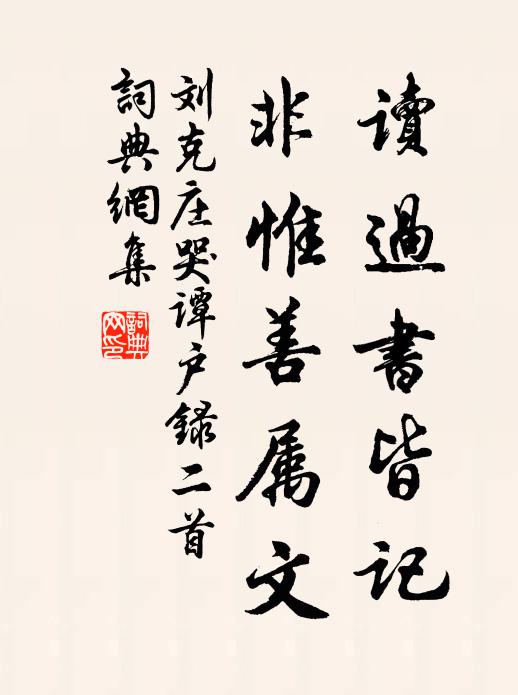 讀過書皆記
非惟善属文
刘克庄哭谭户録二首
詞典網集
詞典网印